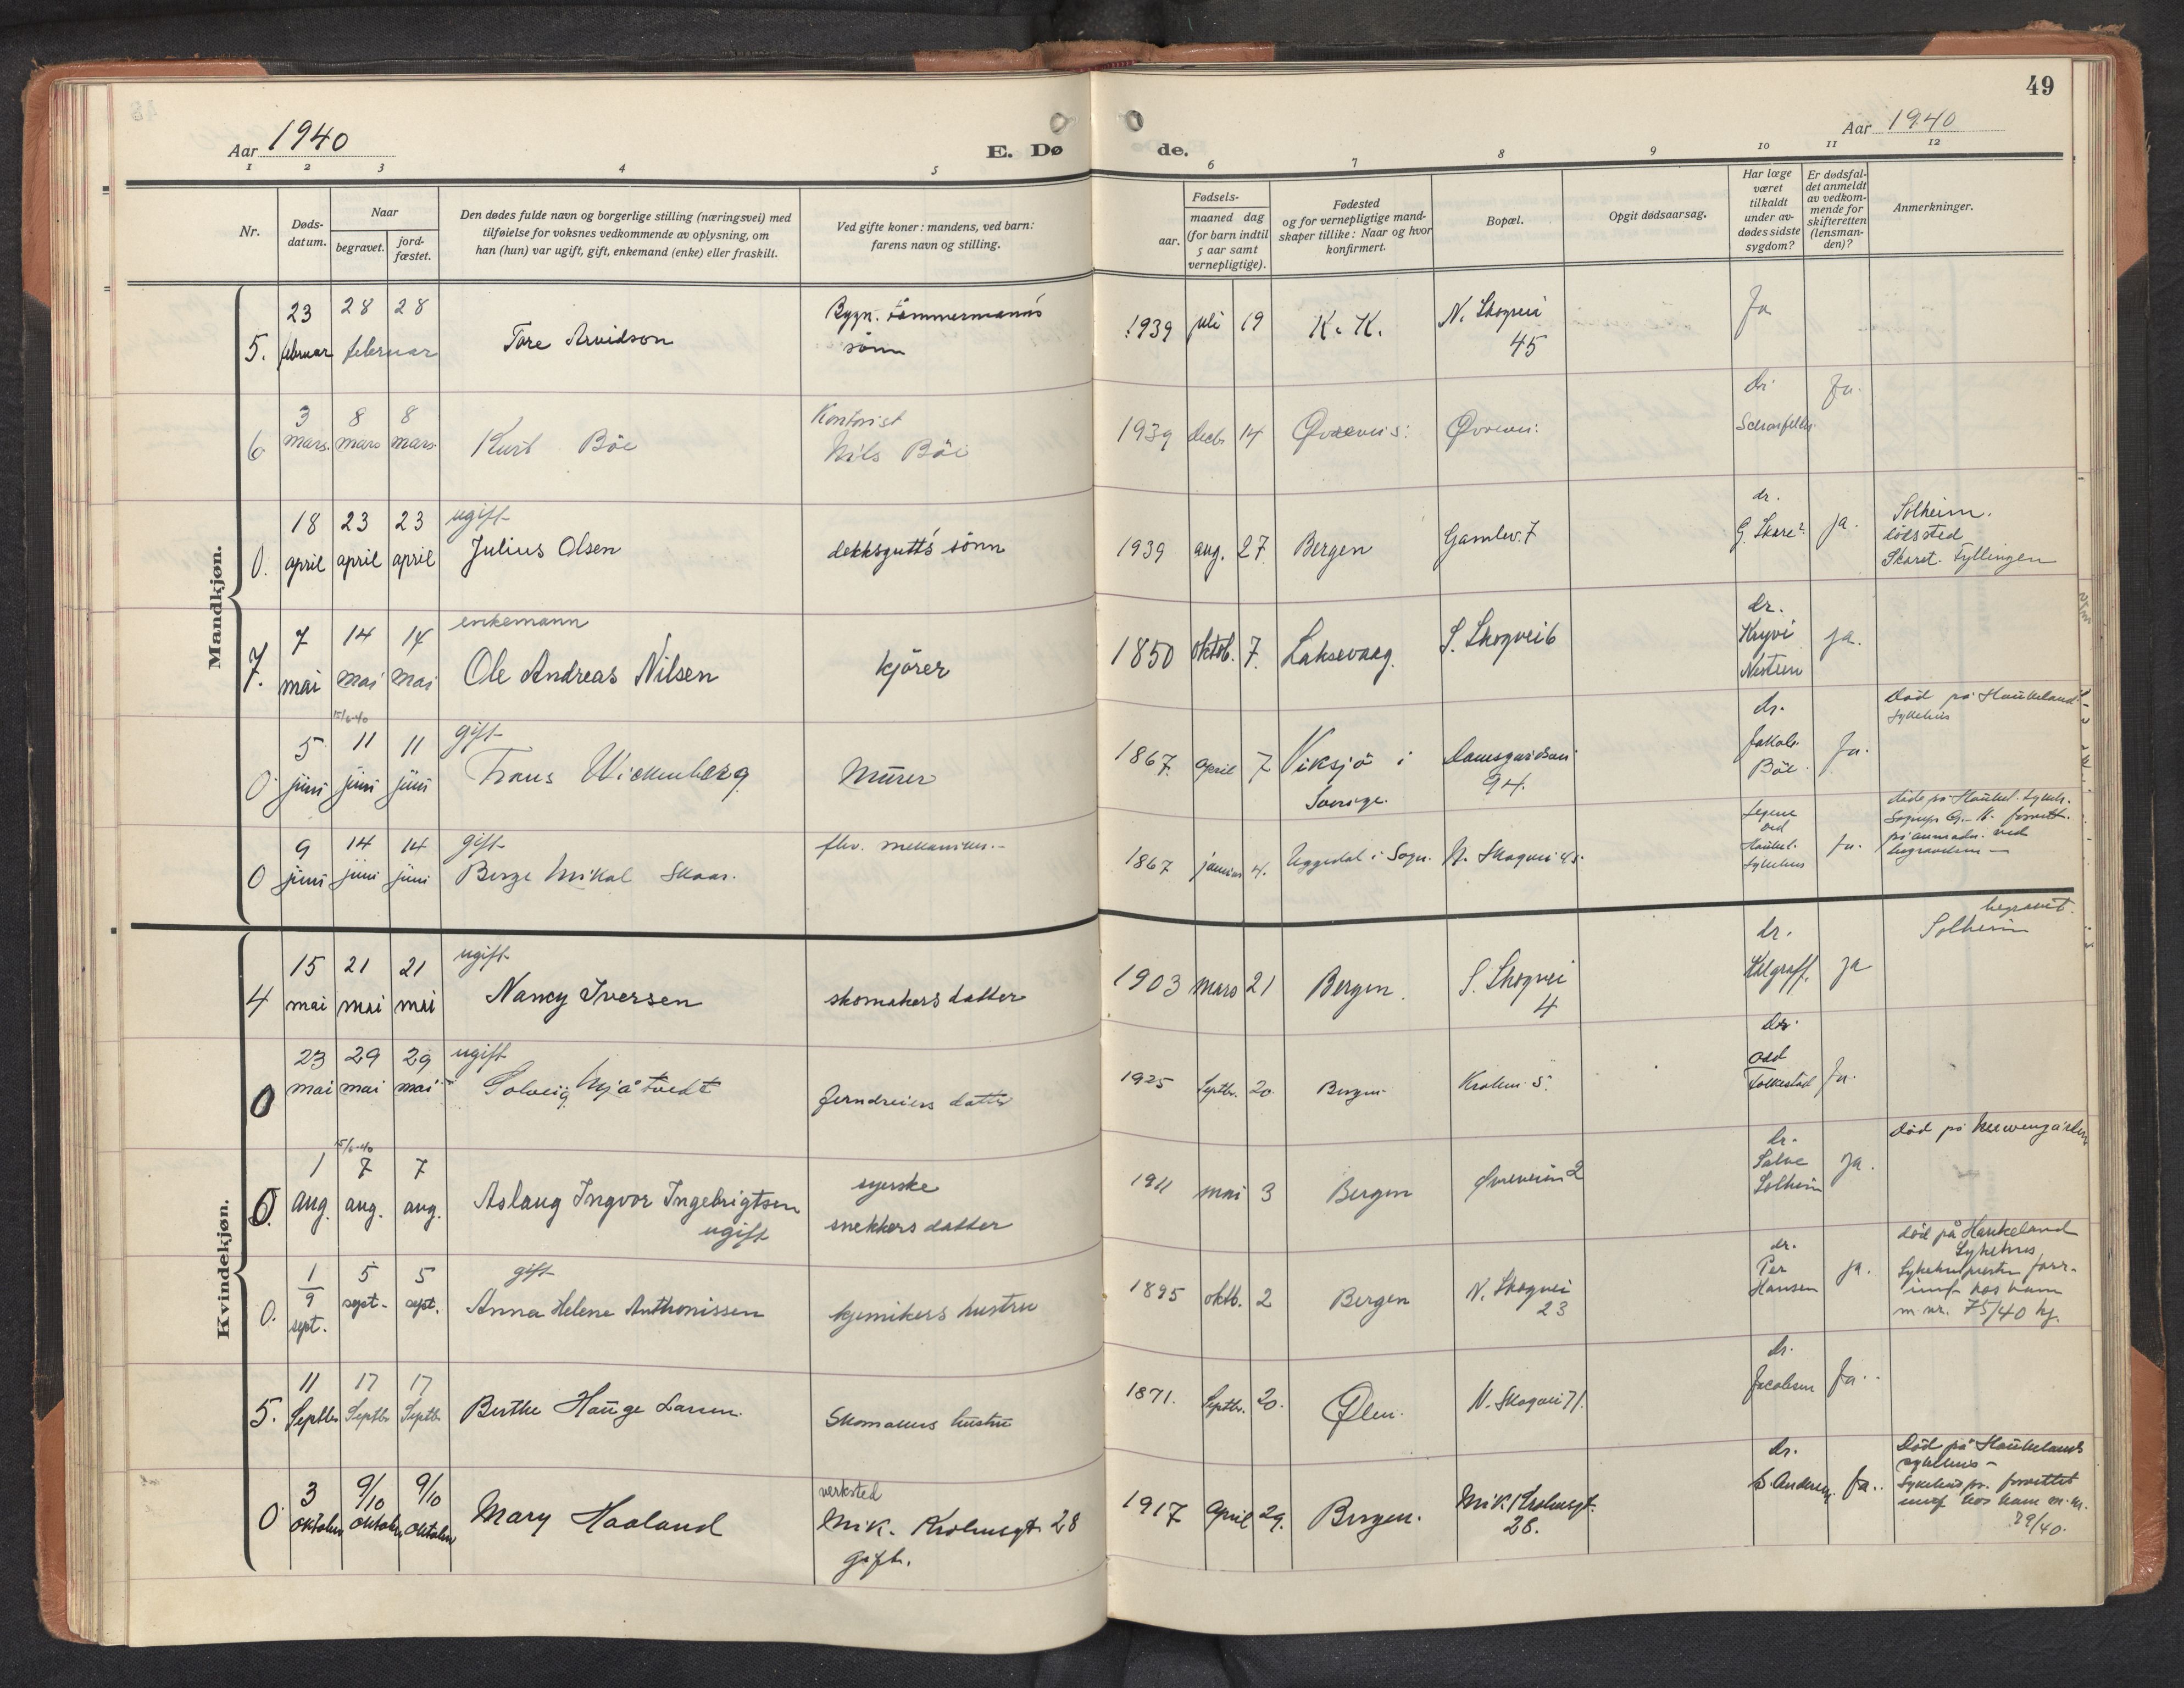 49
Aar 1940
E. Dø
de.
Aar 1940
1 2 3 4 5 6 7 8 9 10 11 12
Nr.
Døds-
datum.
Naar
begravet.
jord-
fæstet.
Den dødes fulde navn og borgerlige stilling (næringsvei) med
tilføielse for voksnes vedkommende av oplysning, om
han (hun) var ugift, gift, enkemand (enke) eller fraskilt.
Ved gifte koner: mandens, ved barn:
farens navn og stilling.
Fødsels-
aar.
maaned dag
(for barn indtil
5 aar samt
vernepligtige).
Fødested
og for vernepligtige mand-
skaper tillike: Naar og hvor
konfirmert.
Bopæl.
Opgit dødsaarsag.
Har læge
været
tilkaldt
under av-
dødes sidste
sygdom?
Er dødsfal-
det anmeldt
av vedkom-
mende for
skifteretten
(lensman-
den)?
Anmerkninger.
Mandkjøn.
23 28 28 Bygn. tömmermanns
5. februar februar Tore Arvidson sönn 1939 juli 19 K. K. N. Skogvei
45
Ja
3 8 8 Kontorist dr. Ja.
6 mars mars mars Kurt Böe Nils Böe 1939 decb. 14 Øvrevei 5.
18 23 23 ugift
0. april april april Julius Olsen dekksgutts sönn 1939 aug. 27 Bergen Gamlev. 7
dr.
G. Skare? ja.
Solheim.
dödssted
Skaret. Fyllingen
7 14 14 enkemann
7. mai mai mai Ole Andreas Nilsen kjörer 1850 oktob. 7. Laksevaag. S. Skogvei 6
dr.
Kryvi
ja.
15/6-40
5 11 11 gift
0 juni juni juni Frans Wickenberg Murer 1867. april 7 Viksjö i
Sverige.
94.
dr.
Jakob
Böe. Ja.
Död på Haukeland
sykehus
9 14 14 gift
0 juni juni juni Berge Mikal Skaar. 1867 januar 4. i Sogn. N. Skogvei 45.
Legene
ved
Haukel.
sykehus Ja.
Kvindekjøn.
15 21 21 ugift
4 mai mai mai Nancy Iversen skomakers datter 1903 mars 21 Bergen. S. Skogvei
4
dr.
ja
begravet.
Solheim
23 29 29 ugift
0 mai mai mai Solveig Mjåtvedt Jerndreiers datter 1925 Septbr. 20. Bergen Krohnv. 5.
dr.
Odd
Folkestad Ja.
15/6-40
1 7 7 syerske
0. aug. aug. aug. Aslaug Ingvor Ingebrigtsen
ugift
snekkers datter 1911 mai 3 Bergen 2
dr.
Solheim ja.
1/9 5 5 gift
0. sept. sept. sept. Anna Helene Anthonissen kjemikers hustru 1895 oktb. 2 Bergen N. Skogvei
23
dr.
Per
Hansen ja.
död på Haukeland
Sykehus
Sykehuspresten forr.
innf. hos ham
m. nr. 75/40 kj.
11 17 17
5. Septbr Septbr Septbr Berthe Hauge Larsen. Skomakers hustru 1871. Septbr. 20. Ølen. N. Skogvei 71.
dr.
Jacobsen Ja.
3 9/10 9/10 verksted
0 oktober oktober oktober Mary Haaland Mik. Krohnsgt. 28
gift.
1917 April 29. Bergen. Mik. Krohnsgt.
28.
dr.
Andersen Ja.
Död på Haukelands
sykehus -
Sykehuspr. forrettet
innf. hos ham m. nr.
79/40.